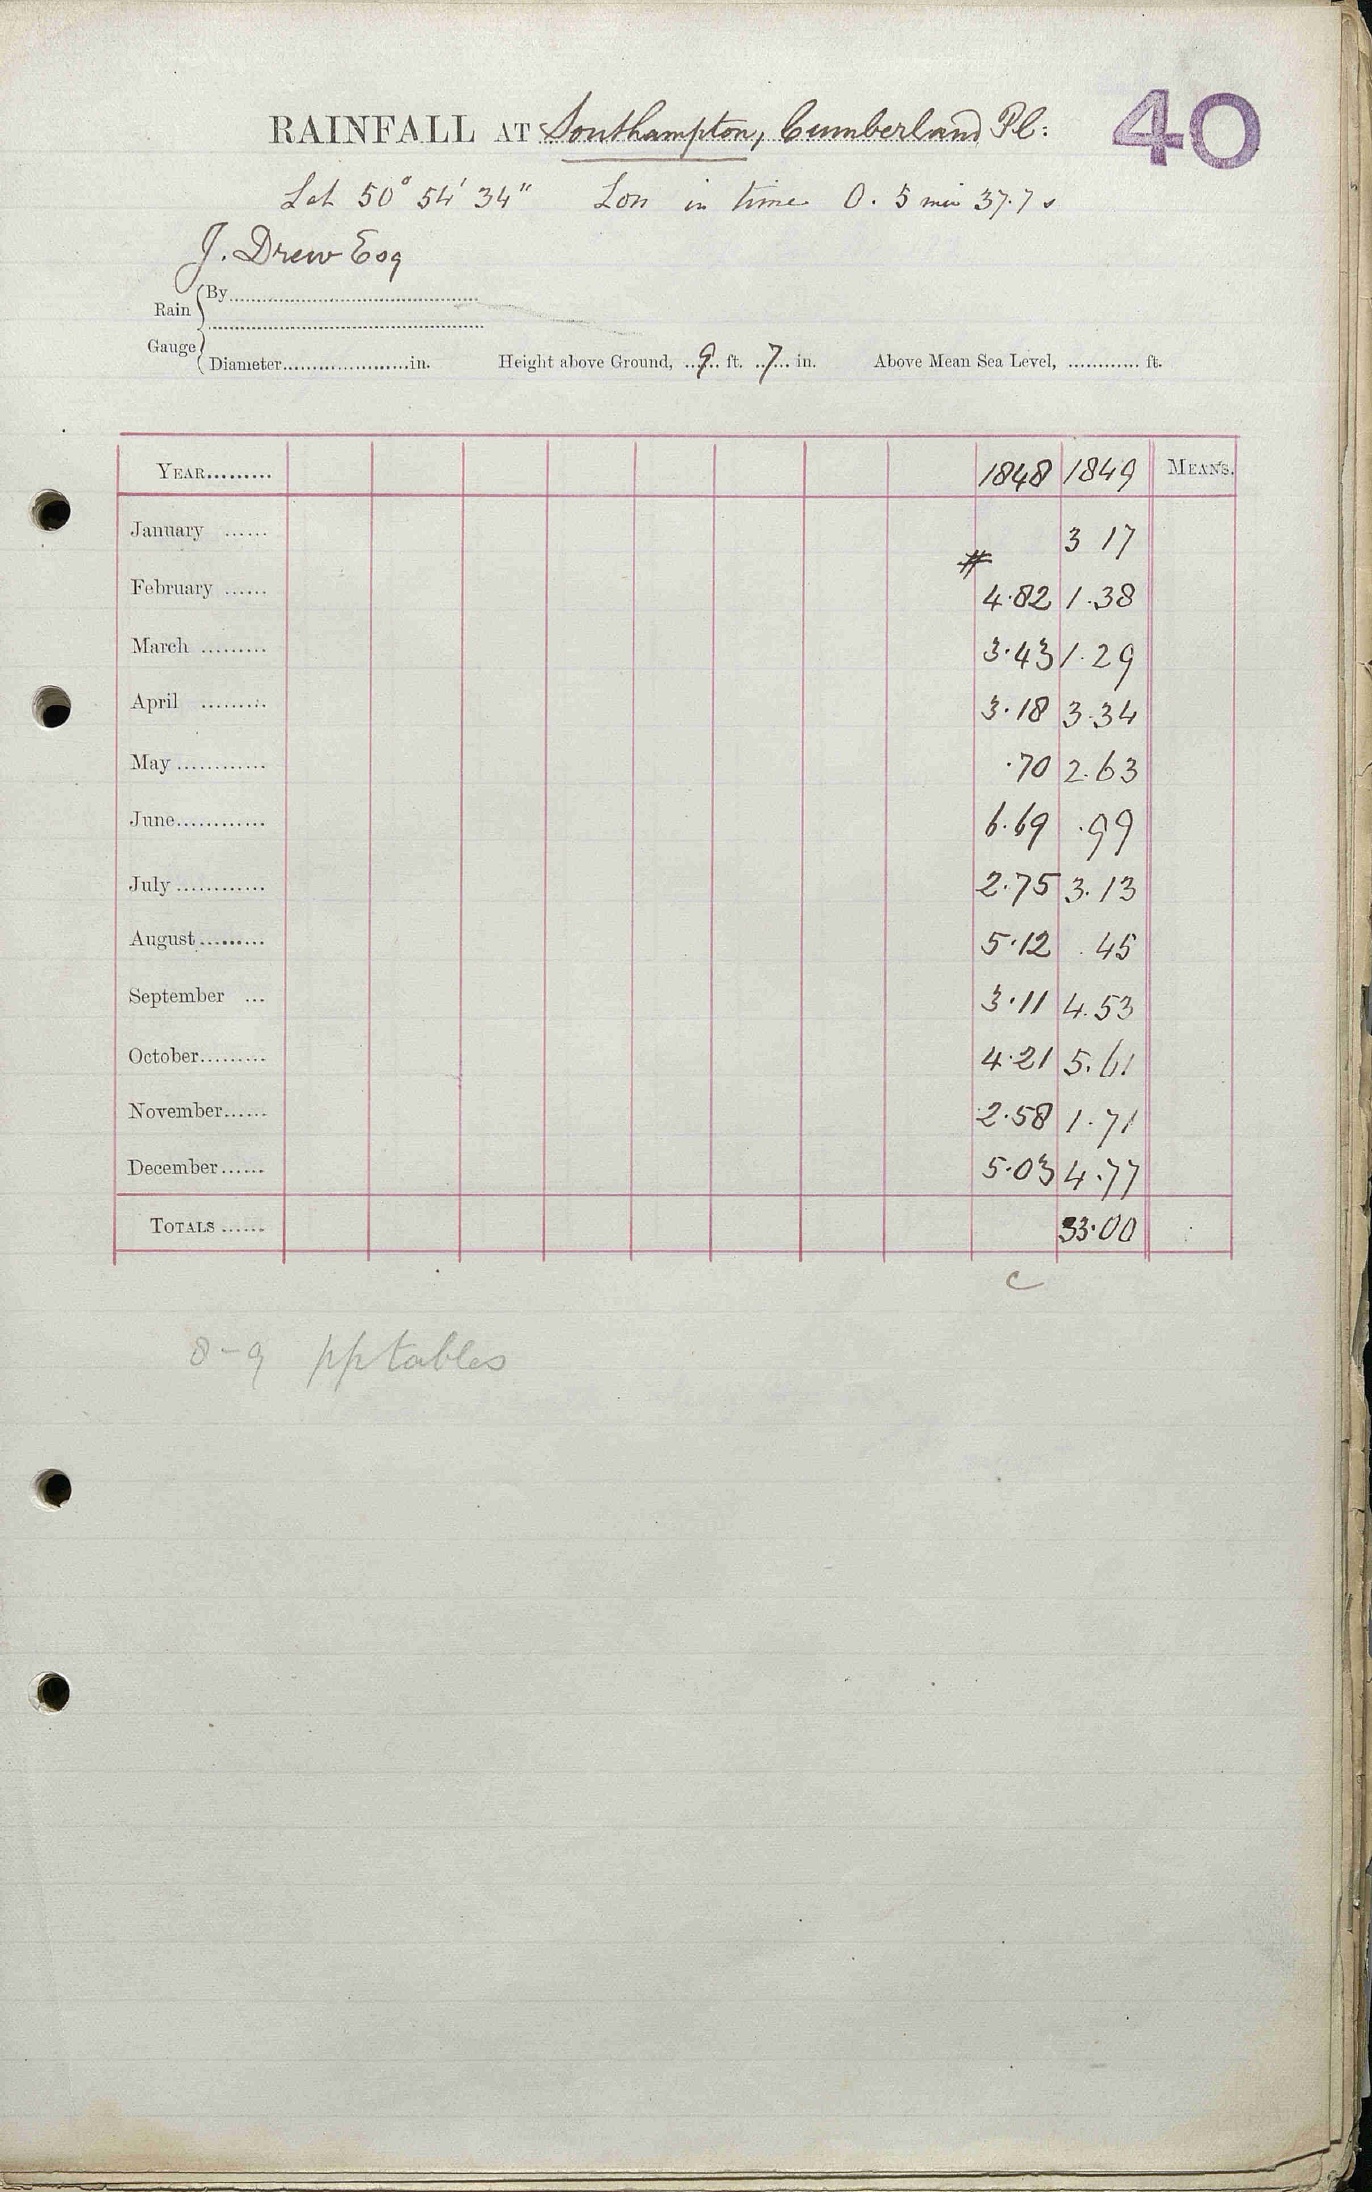 RAINFALL AT Southampton, Cumberland Pl: 40
Lat 50° 54' 34" Lon in time 0. 5 min 37.7 s
J. Drew Esq
Rain Gauge { By..........
Diameter..........in. Height above Ground, 9 ft. 7 in. Above Mean Sea Level, ............ ft.
YEAR......... 1848 1849 MEANS.
January ...... 3 17
#
February ...... 4.82 1.38
March ......... 3.43 1.29
April ......... 3.18 3.34
May ............ .70 2.63
June............ 6.69 .99
July ............ 2.75 3.13
August......... 5.12 .45
September ... 3.11 4.53
October......... 4.21 5.61
November...... 2.58 1.71
December...... 5.03 4.77
TOTALS ...... 33.00
c
8-9 pp tables